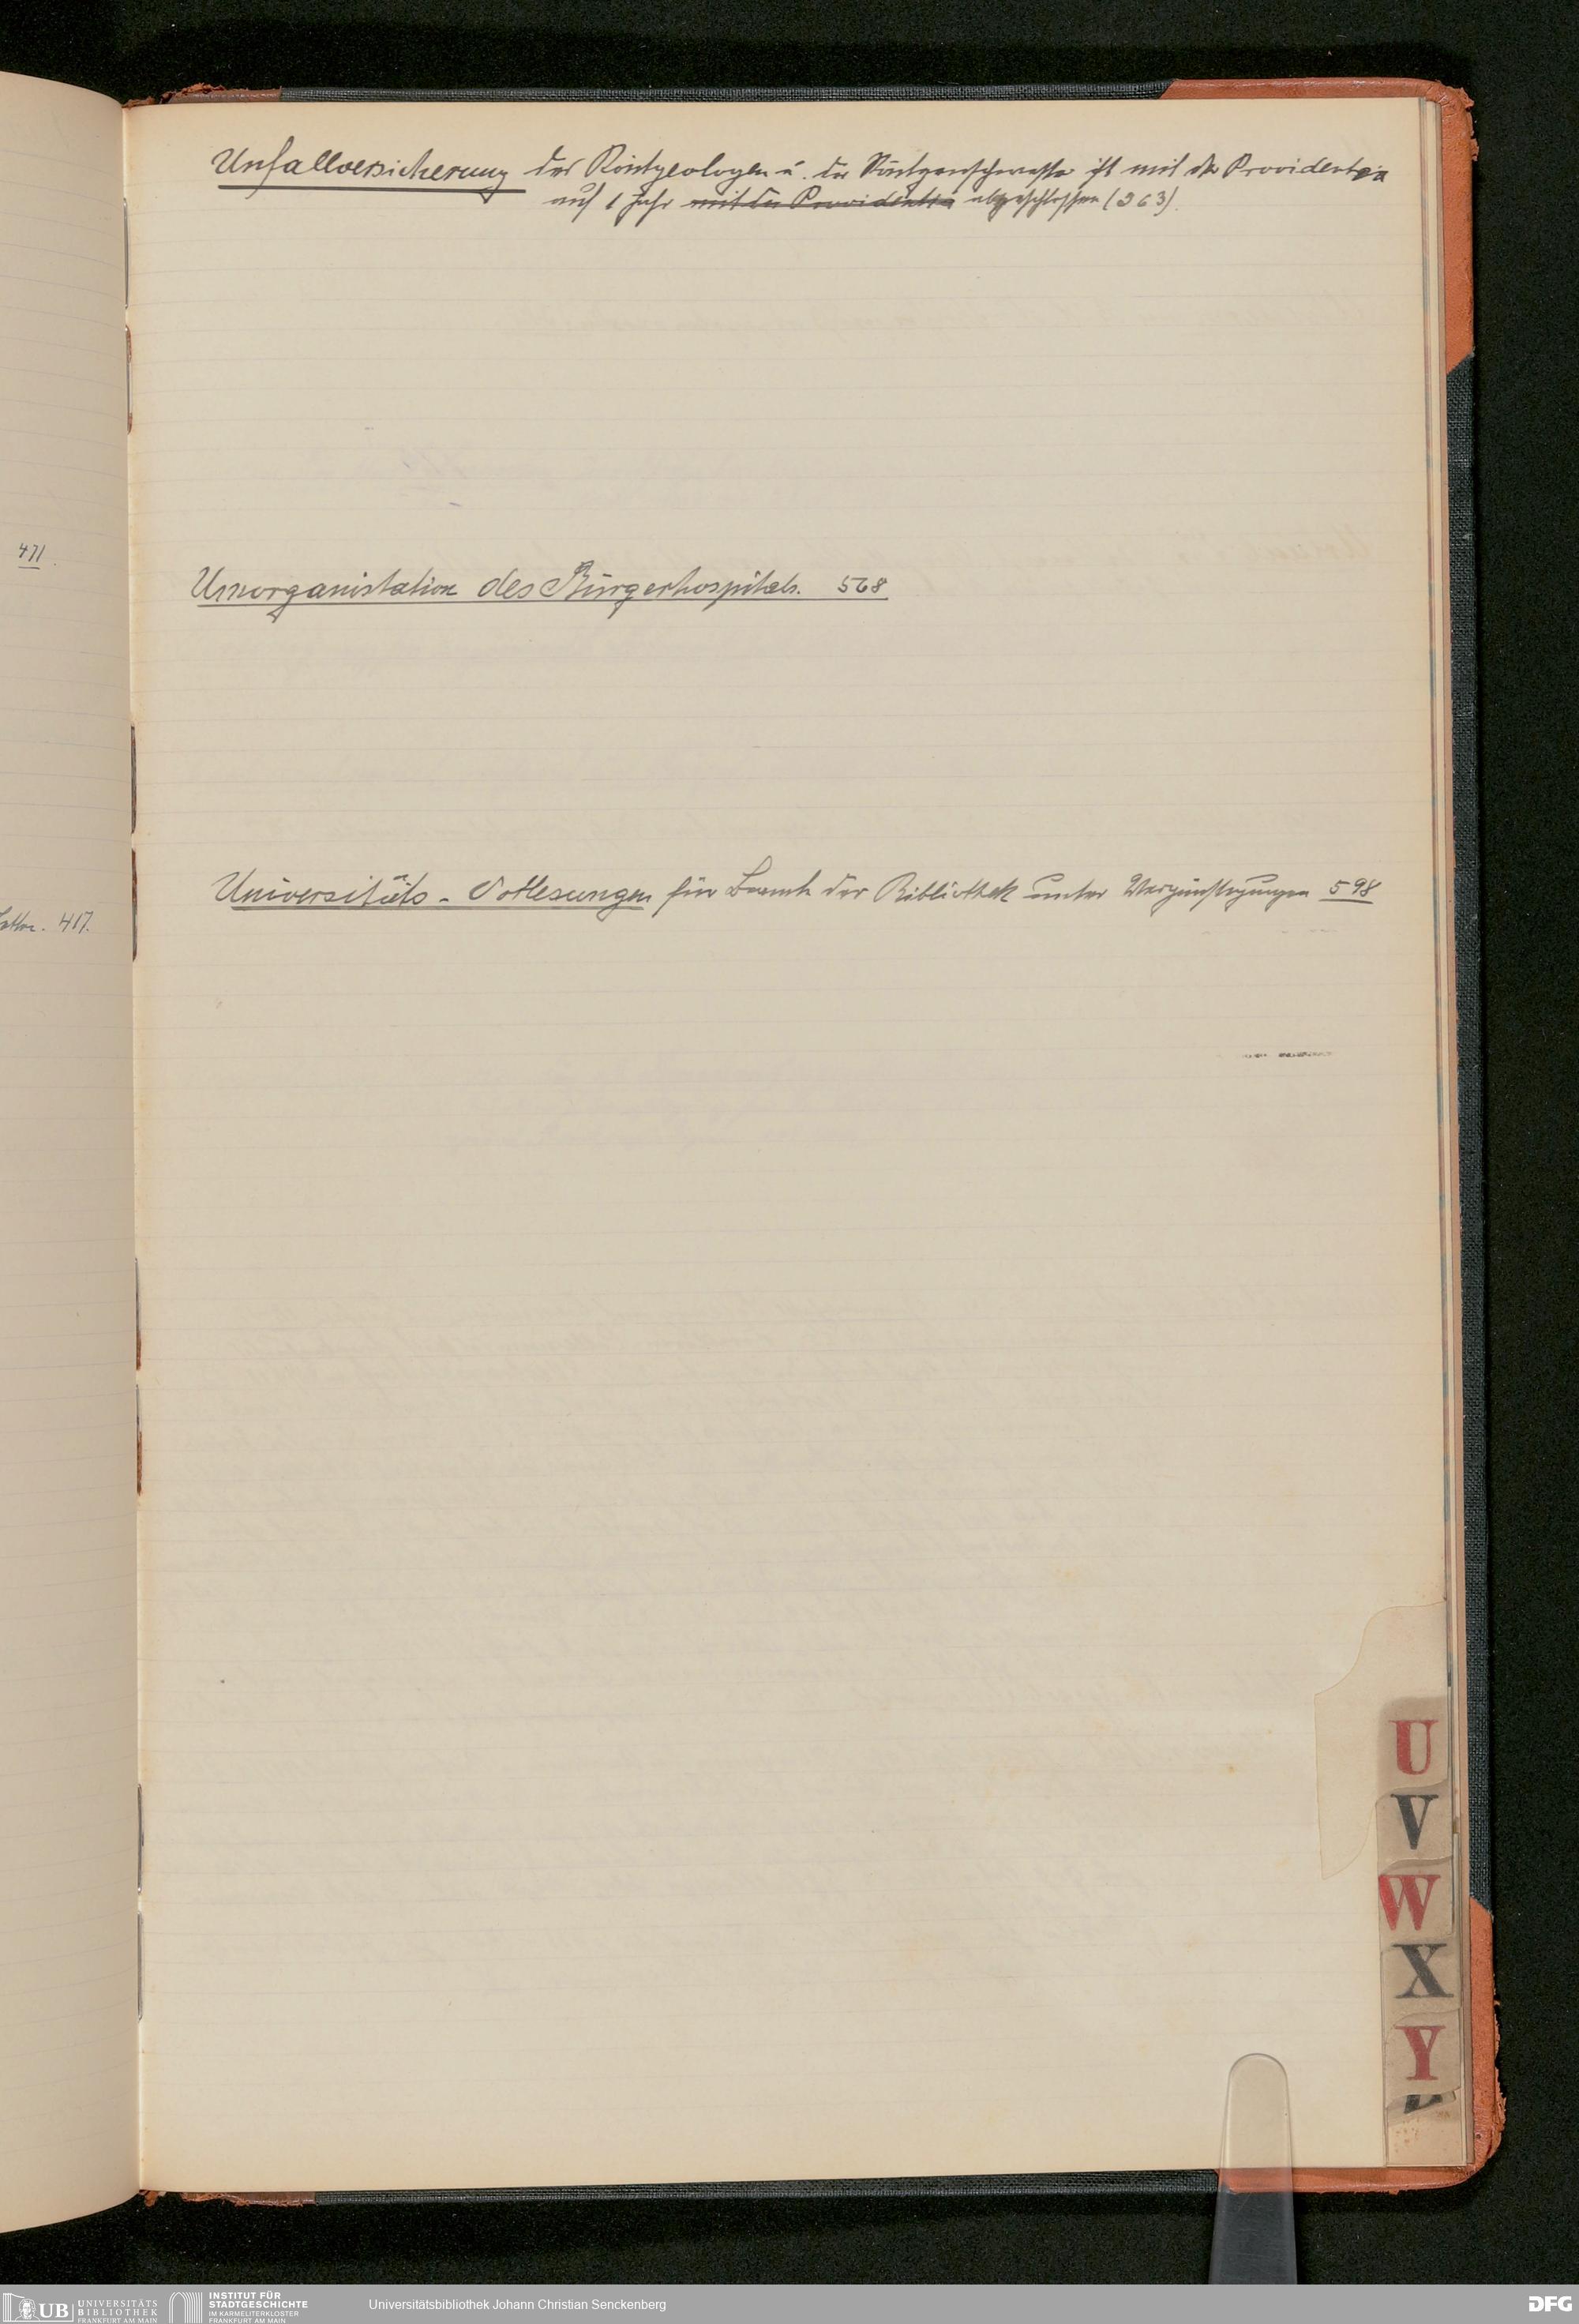 471.
417.
Unfallversicherung des Röntgeologen u. der Röntgenschwester ist mit der Providentia
auf 1 Jahr mit der Providentia abgeschlossen (363).
Umorganistation des Bürgerhospitals. 568
Universitäts-Vorlesungen für Beamte der Bibliothek unter Vergünstigungen 598
U
V
W
X
Y
UB UNIVERSITÄTS
BIBLIOTHEK
FRANKFURT AM MAIN
INSTITUT FÜR
STADTGESCHICHTE
IM KARMELITERKLOSTER
FRANKFURT AM MAIN
Universitätsbibliothek Johann Christian Senckenberg
DFG